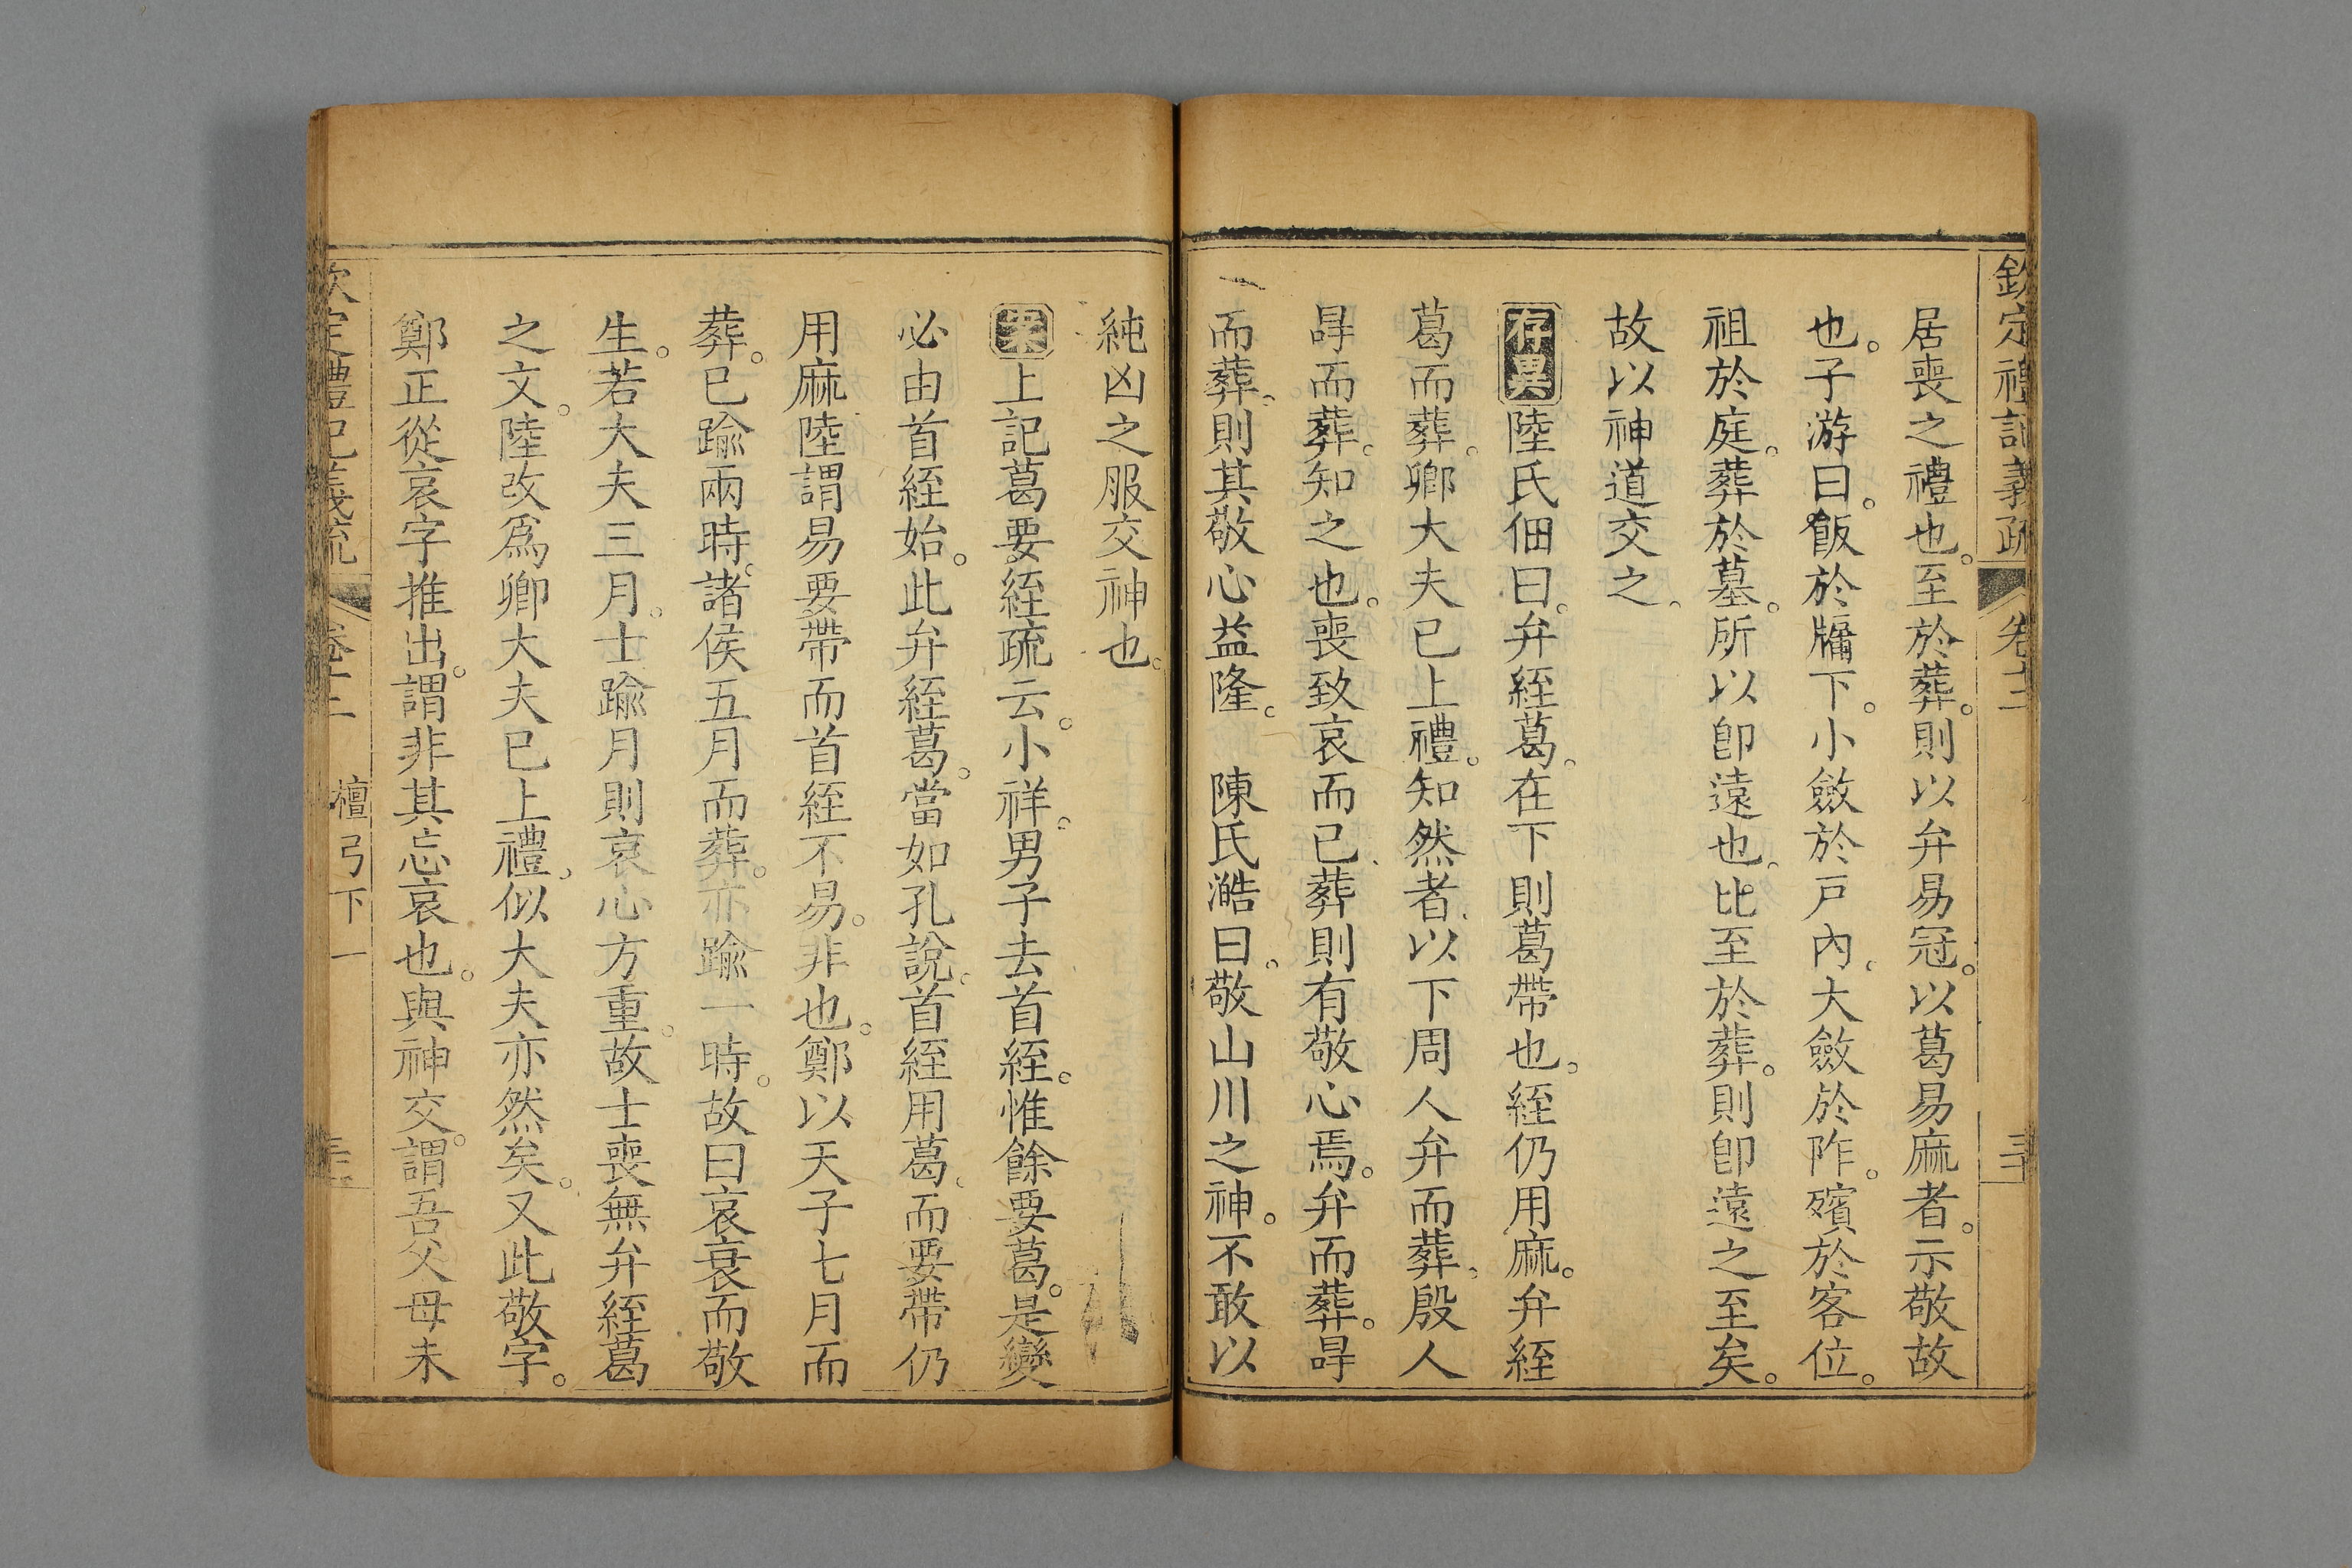 欽定禮記義疏 卷十二 三十
居喪之禮也。至於葬。則以弁易冠。以葛易麻者。示敬故
也。子游曰。飯於牖下。小斂於戸內。大斂於阼。殯於客位。
祖於庭。葬於墓。所以卽遠也。比至於葬。則卽遠之至矣。
故以神道交之。
存異陸氏佃曰。弁絰葛。在下則葛帶也。絰仍用麻。弁絰
葛而葬。卿大夫已上禮。知然者。以下周人弁而葬。殷人
冔而葬。知之也。喪致哀而已。葬則有敬心焉。弁而葬。冔
而葬。則其敬心益隆。 陳氏澔曰。敬山川之神。不敢以
純凶之服交神也。
案上記葛要絰疏云。小祥。男子去首絰。惟餘要葛。是變
必由首絰始。此弁絰葛。當如孔說。首絰用葛。而要帶仍
用麻陸謂易要帶而首絰不易。非也。鄭以天子七月而
葬。已踰兩時。諸侯五月而葬。亦踰一時。故曰哀衰而敬
生。若大夫三月。士踰月則哀心方重。故士喪無弁絰葛
之文。陸改爲卿大夫已上禮。似大夫亦然矣。又此敬字。
鄭正從哀字推出。謂非其忘哀也。與神交。謂吾父母未
欽定禮記義疏 卷十二 檀弓下一